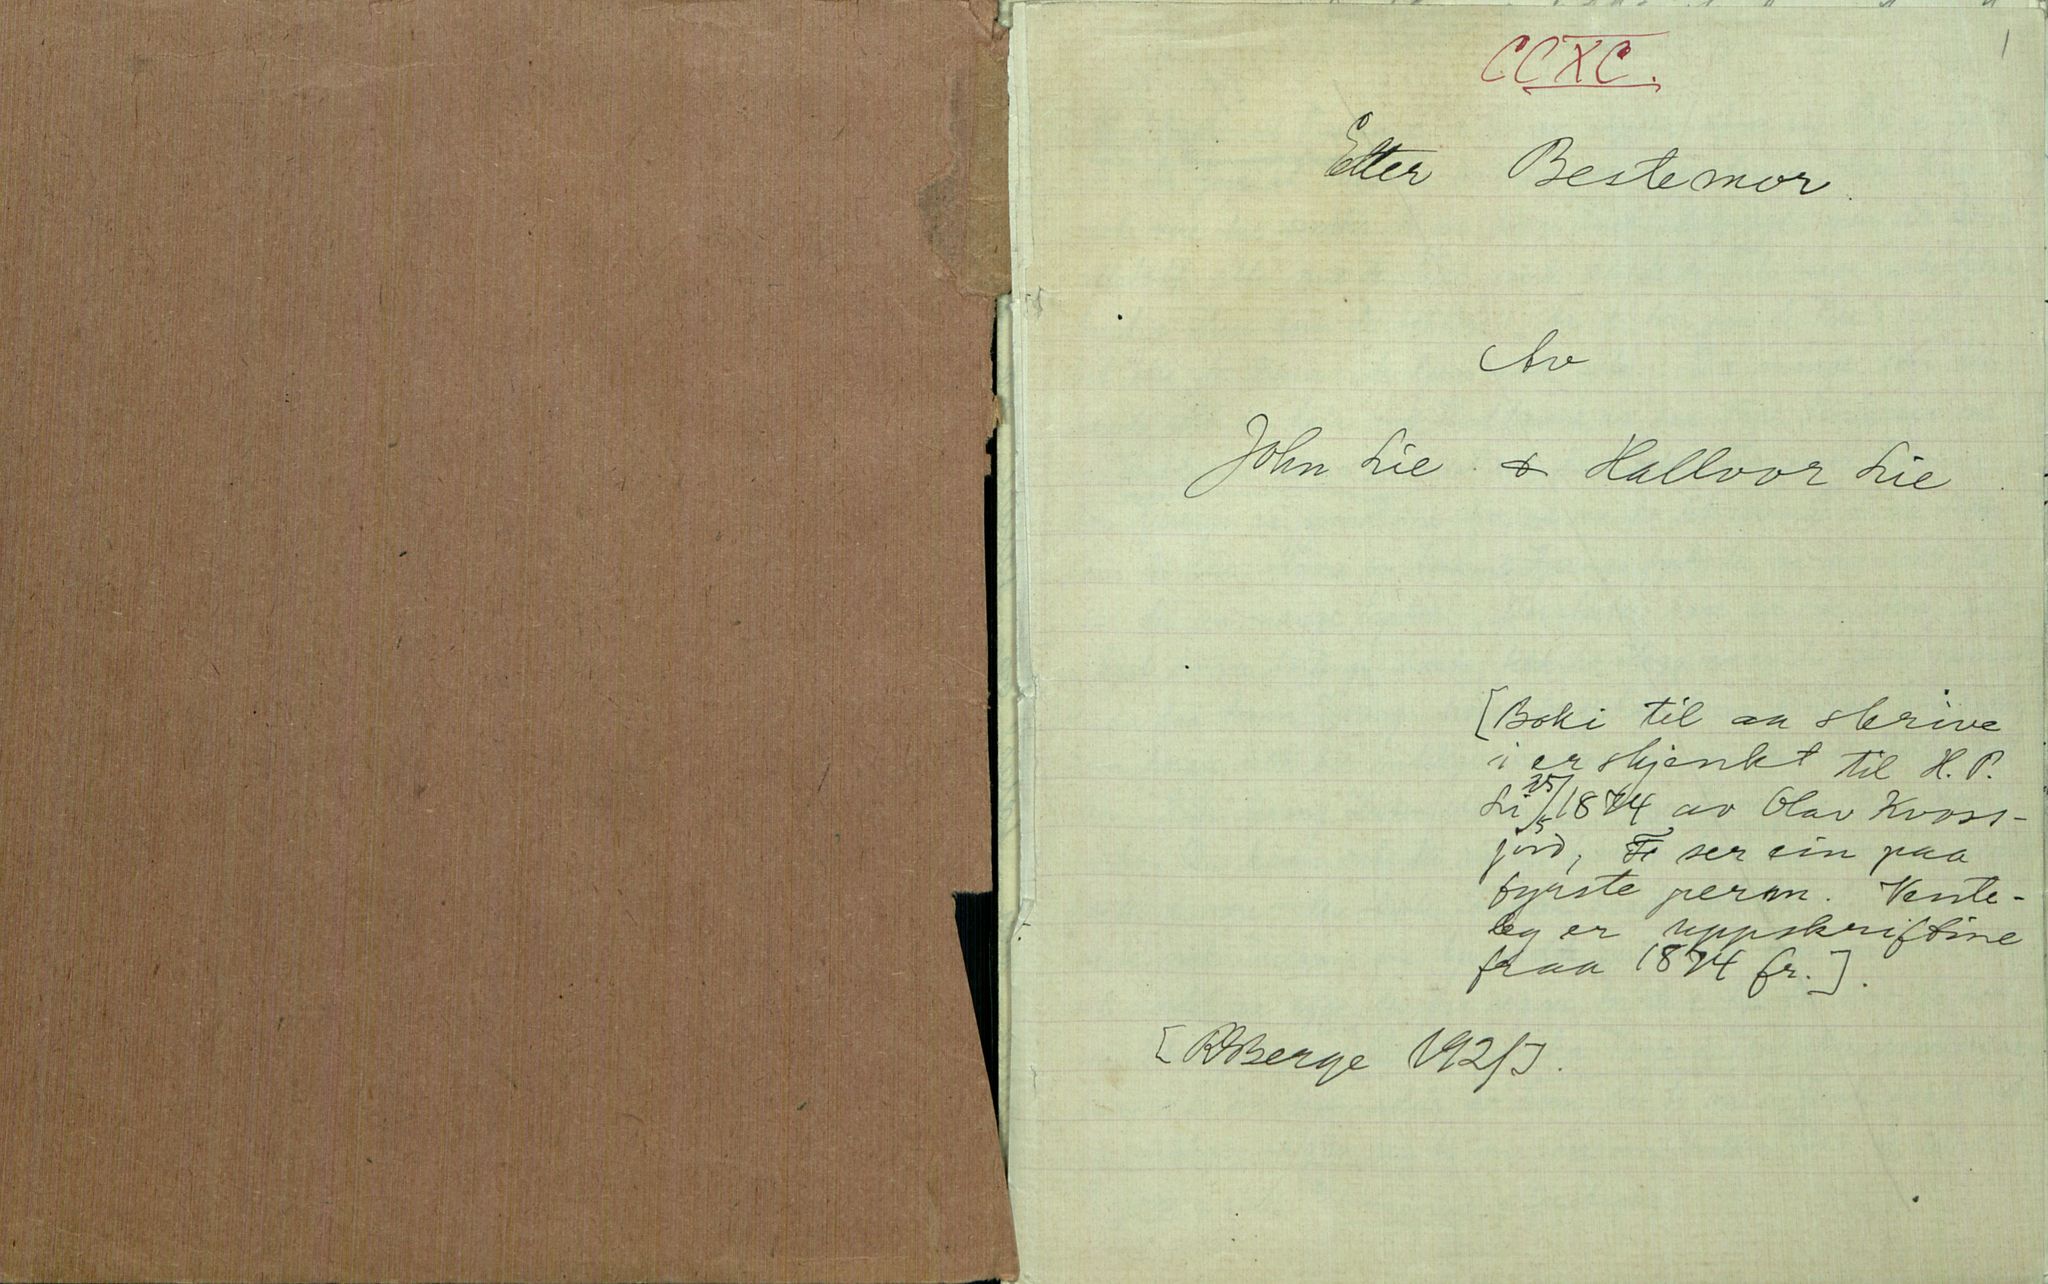 CCXC.
1
Etter Bestemor.
Av
John Lie & Hallvor Lie
[Boki til aa skrive
i er skjenkt til H. P.
Li 25/5 1874 av Olav Kross-
jord, ser ein paa
fyrste perm. Vente-
leg er uppskriftine
fraa 1874 fr.].
[RBerge 1925].